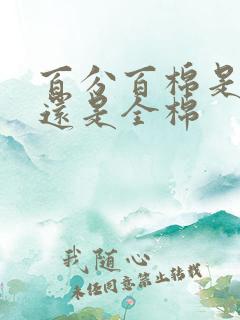 百分百棉是
還是全棉
我随心
未经同意禁止转载